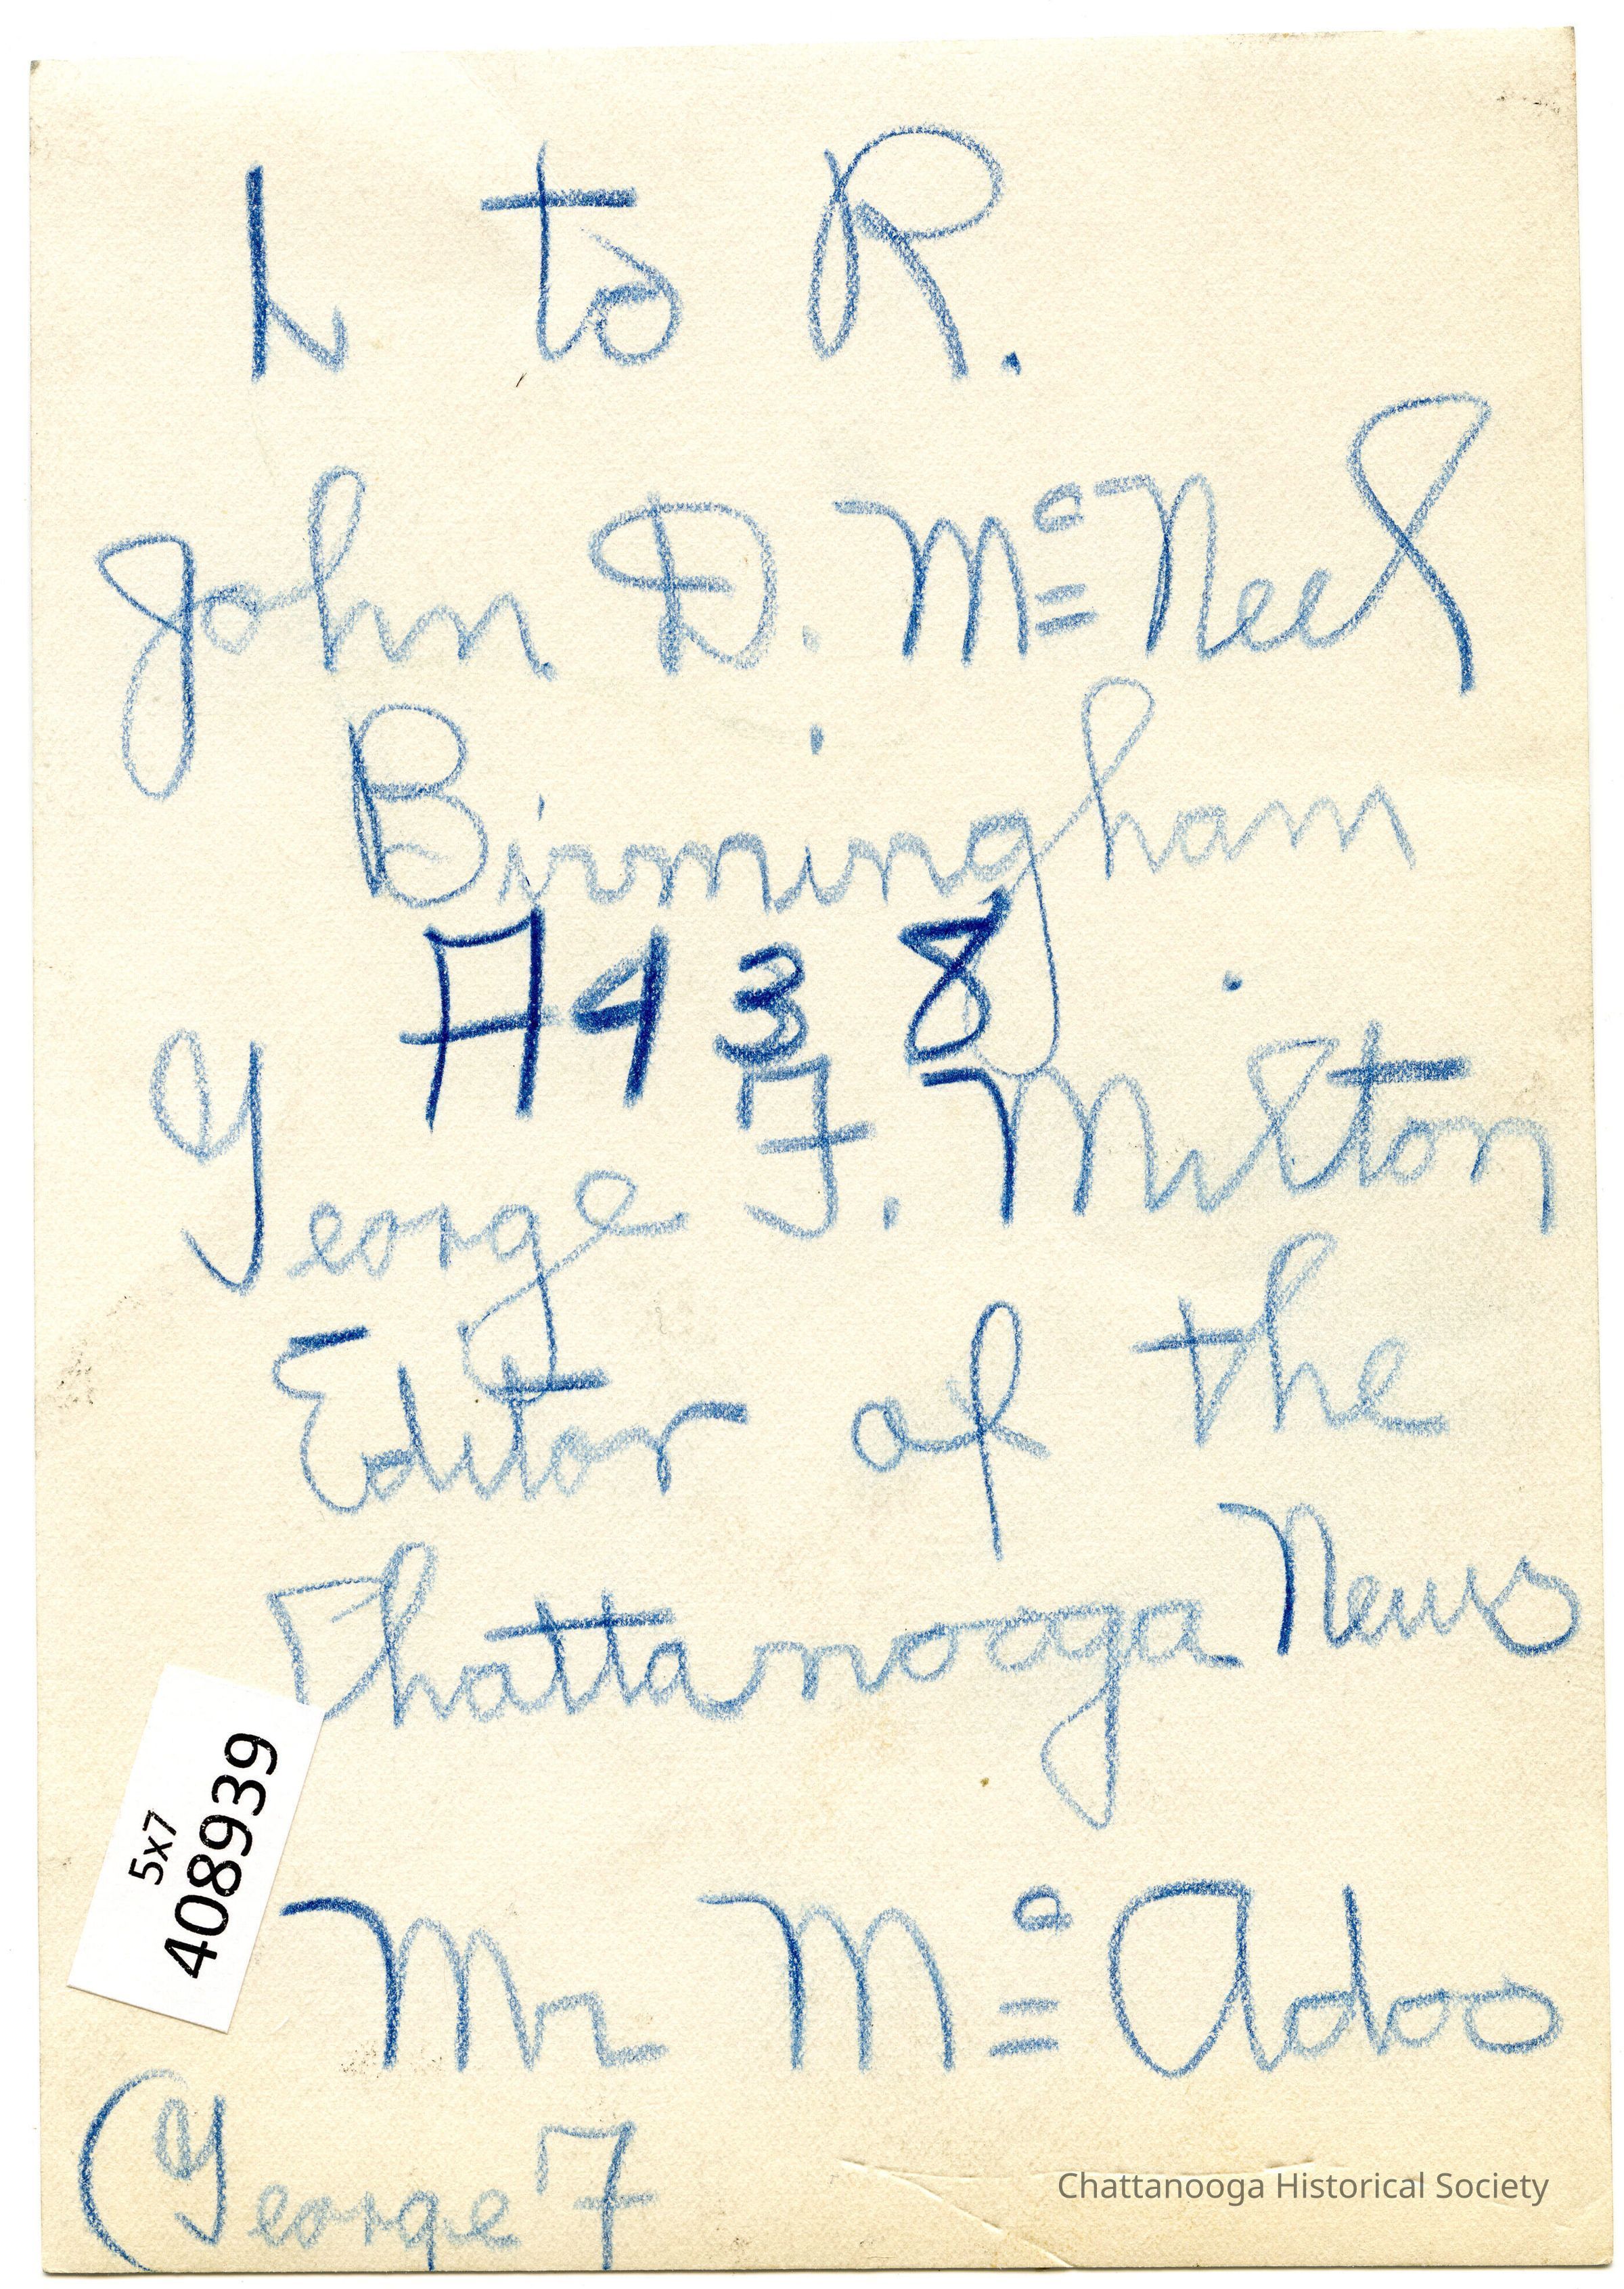 L to R.
John D. McNeel
Birmingham
A438
George F. Milton
Editor of the
Chattanooga News
5x7
408939
Mr McAdoo
(George F
Chattanooga Historical Society